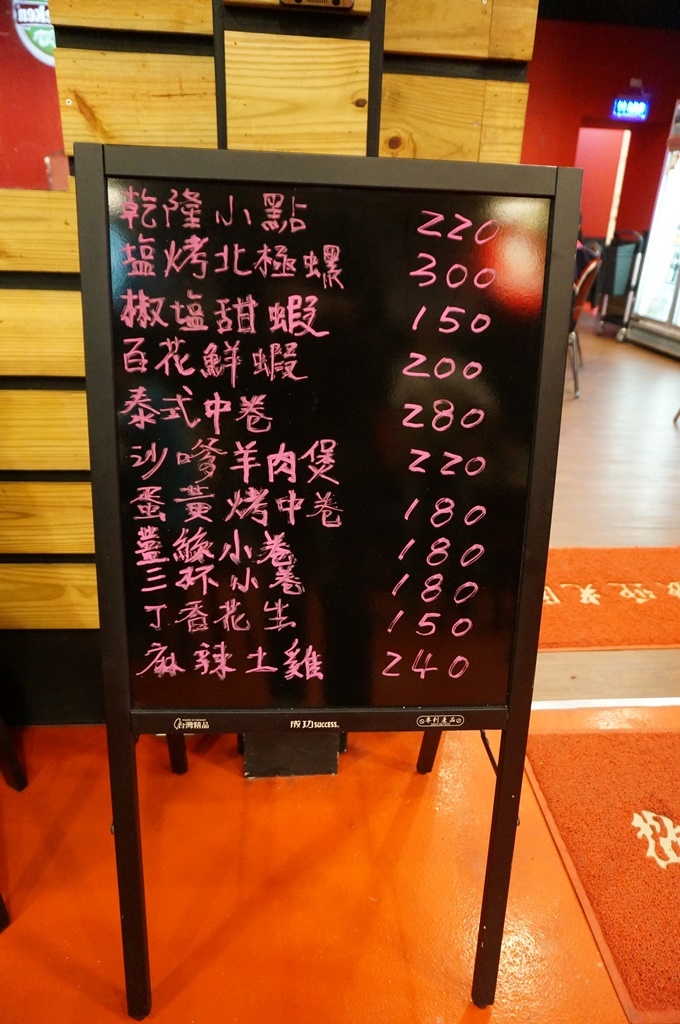 乾隆小點 220
塩烤北極螺 300
椒塩甜蝦 150
百花鮮蝦 200
泰式中卷 280
沙嗲羊肉煲 220
蛋黃烤中卷 180
薑絲小卷 180
三杯小卷 180
丁香花生 150
麻辣土雞 240
台灣精品 成功SUCCESS. 專利產品